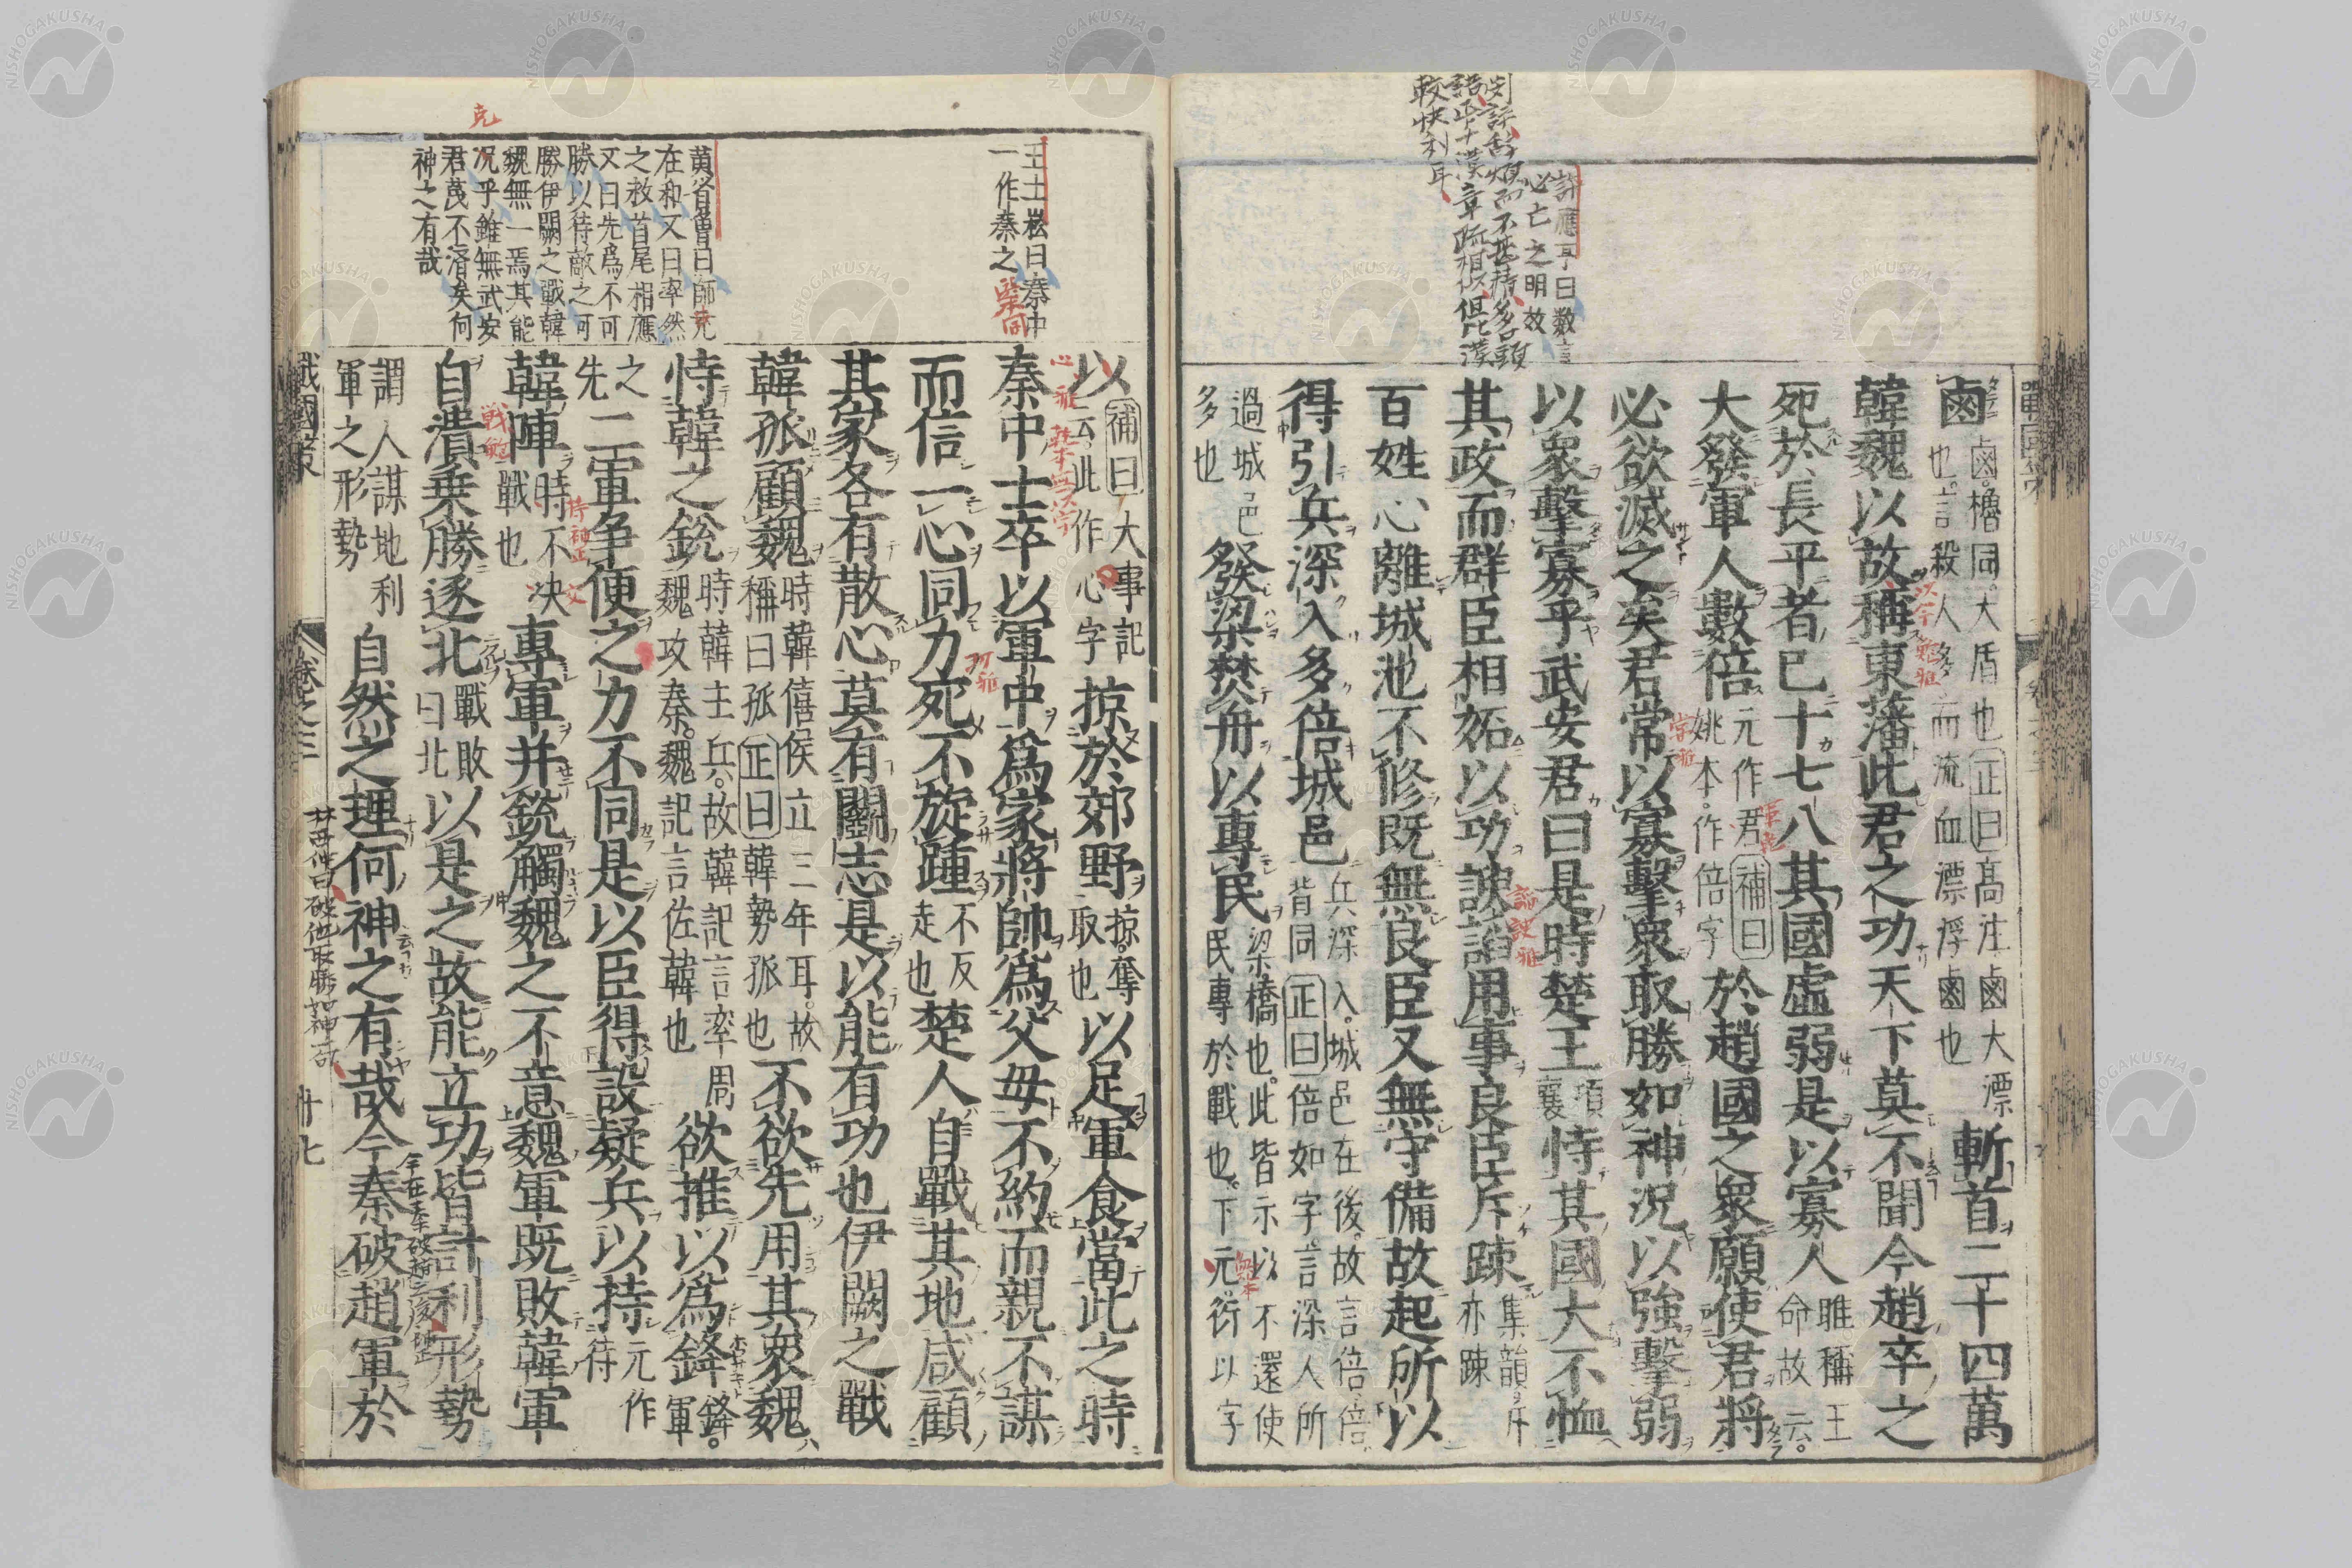 許應亨曰数言
必亡之明效
鹵鹵櫓同大盾也正曰高注鹵大漂
也言殺人多而流血漂浮鹵也斬首二十四萬
韓魏以故稱東藩此君之功天下莫不聞今趙卒之
死於長平者已十七八其國虛弱是以寡人睢稱王命故云
大發軍人數倍元作君補曰姚本作倍字於趙國之衆願使君將
必欲滅之矣君常以寡擊衆取勝如神況以強擊弱
以衆擊寡乎武安君曰是時楚王頃襄恃其國大不恤
其政而群臣相妬以功諛諂用事良臣斥疎集韻斥亦疎
百姓心離城池不修既無良臣又無守備故起所以
得引兵深入多倍城邑兵深入城邑在後故言倍倍背同正曰倍如字言深入所
過城邑多也發梁焚舟以專民梁橋也此皆示以不還使民專於戰也下元衍以字
王士崧曰秦中
一作秦之
以補曰大事記云此作心字掠於郊野掠奪取也以足軍食當此之時
秦中士卒以軍中爲家將帥爲父母不約而親不謀
而信一心同力死不旋踵不反走也楚人自戰其地咸顧
其家各有散心莫有鬭志是以能有功也伊闕之戰
韓孤顧魏時韓僖侯立三年耳故稱曰孤正曰韓勢孤也不欲先用其衆魏
恃韓之銳時韓主兵故韓記言率周魏攻秦魏記言佐韓也欲推以爲鋒鋒軍
之先二軍争便之力不同是以臣得設疑兵以持元作待
韓陣時不決戰也專軍并銳觸魏之不意魏軍既敗韓軍
自潰乗勝逐北戰敗曰北以是之故能立功皆計利形勢
謂人謀地利軍之形勢自然之理何神之有哉今秦破趙軍於
黄省曾曰師克
在和又曰率然
之救首尾相應
又曰先爲不可
勝以待敵之可
勝伊闕之戰韓
魏無一焉其能
況乎雖無武安
君蔑不濟矣何
神之有哉
戰國策
卷之三
廿七